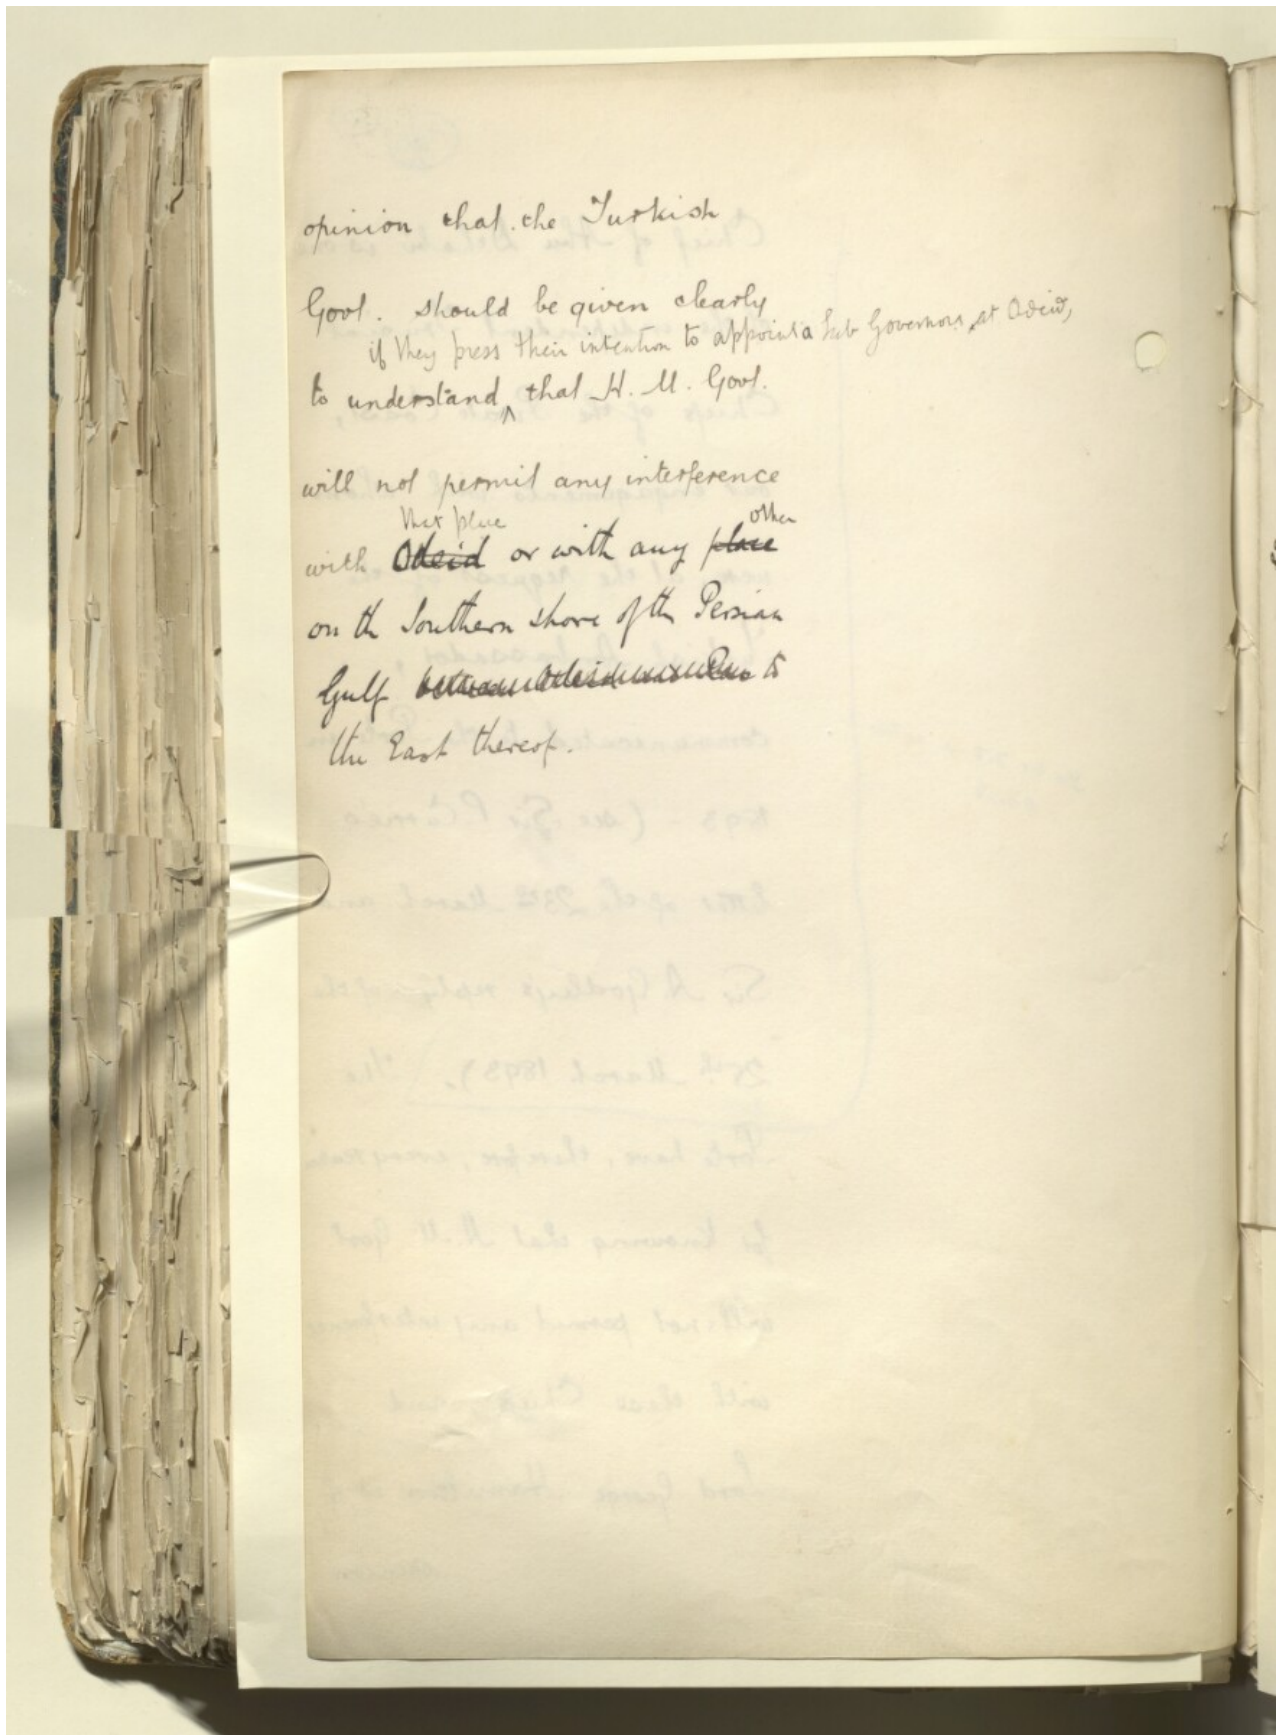 opinion that the Turkish
Govt. should be given clearly
if they press their intention to appoint a Sub Governor at Odeid,
to understand that H. M. Govt.
will not permit any interference
that place other
with Odeid or with any place
on the Southern shore of the Persian
Gulf to
the East thereof.